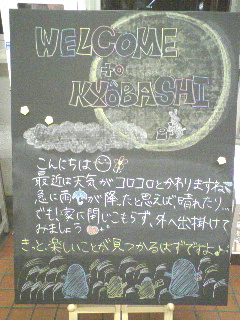 WELCOME
to
KYOBASHI
こんにちは
最近は天気がコロコロとかわりますね、
急に雨が降ったと思えば晴れたり…
でも家に閉じこもらず、外へ出掛けて
みましょう
きっと楽しいことが見つかるはずですよ♪